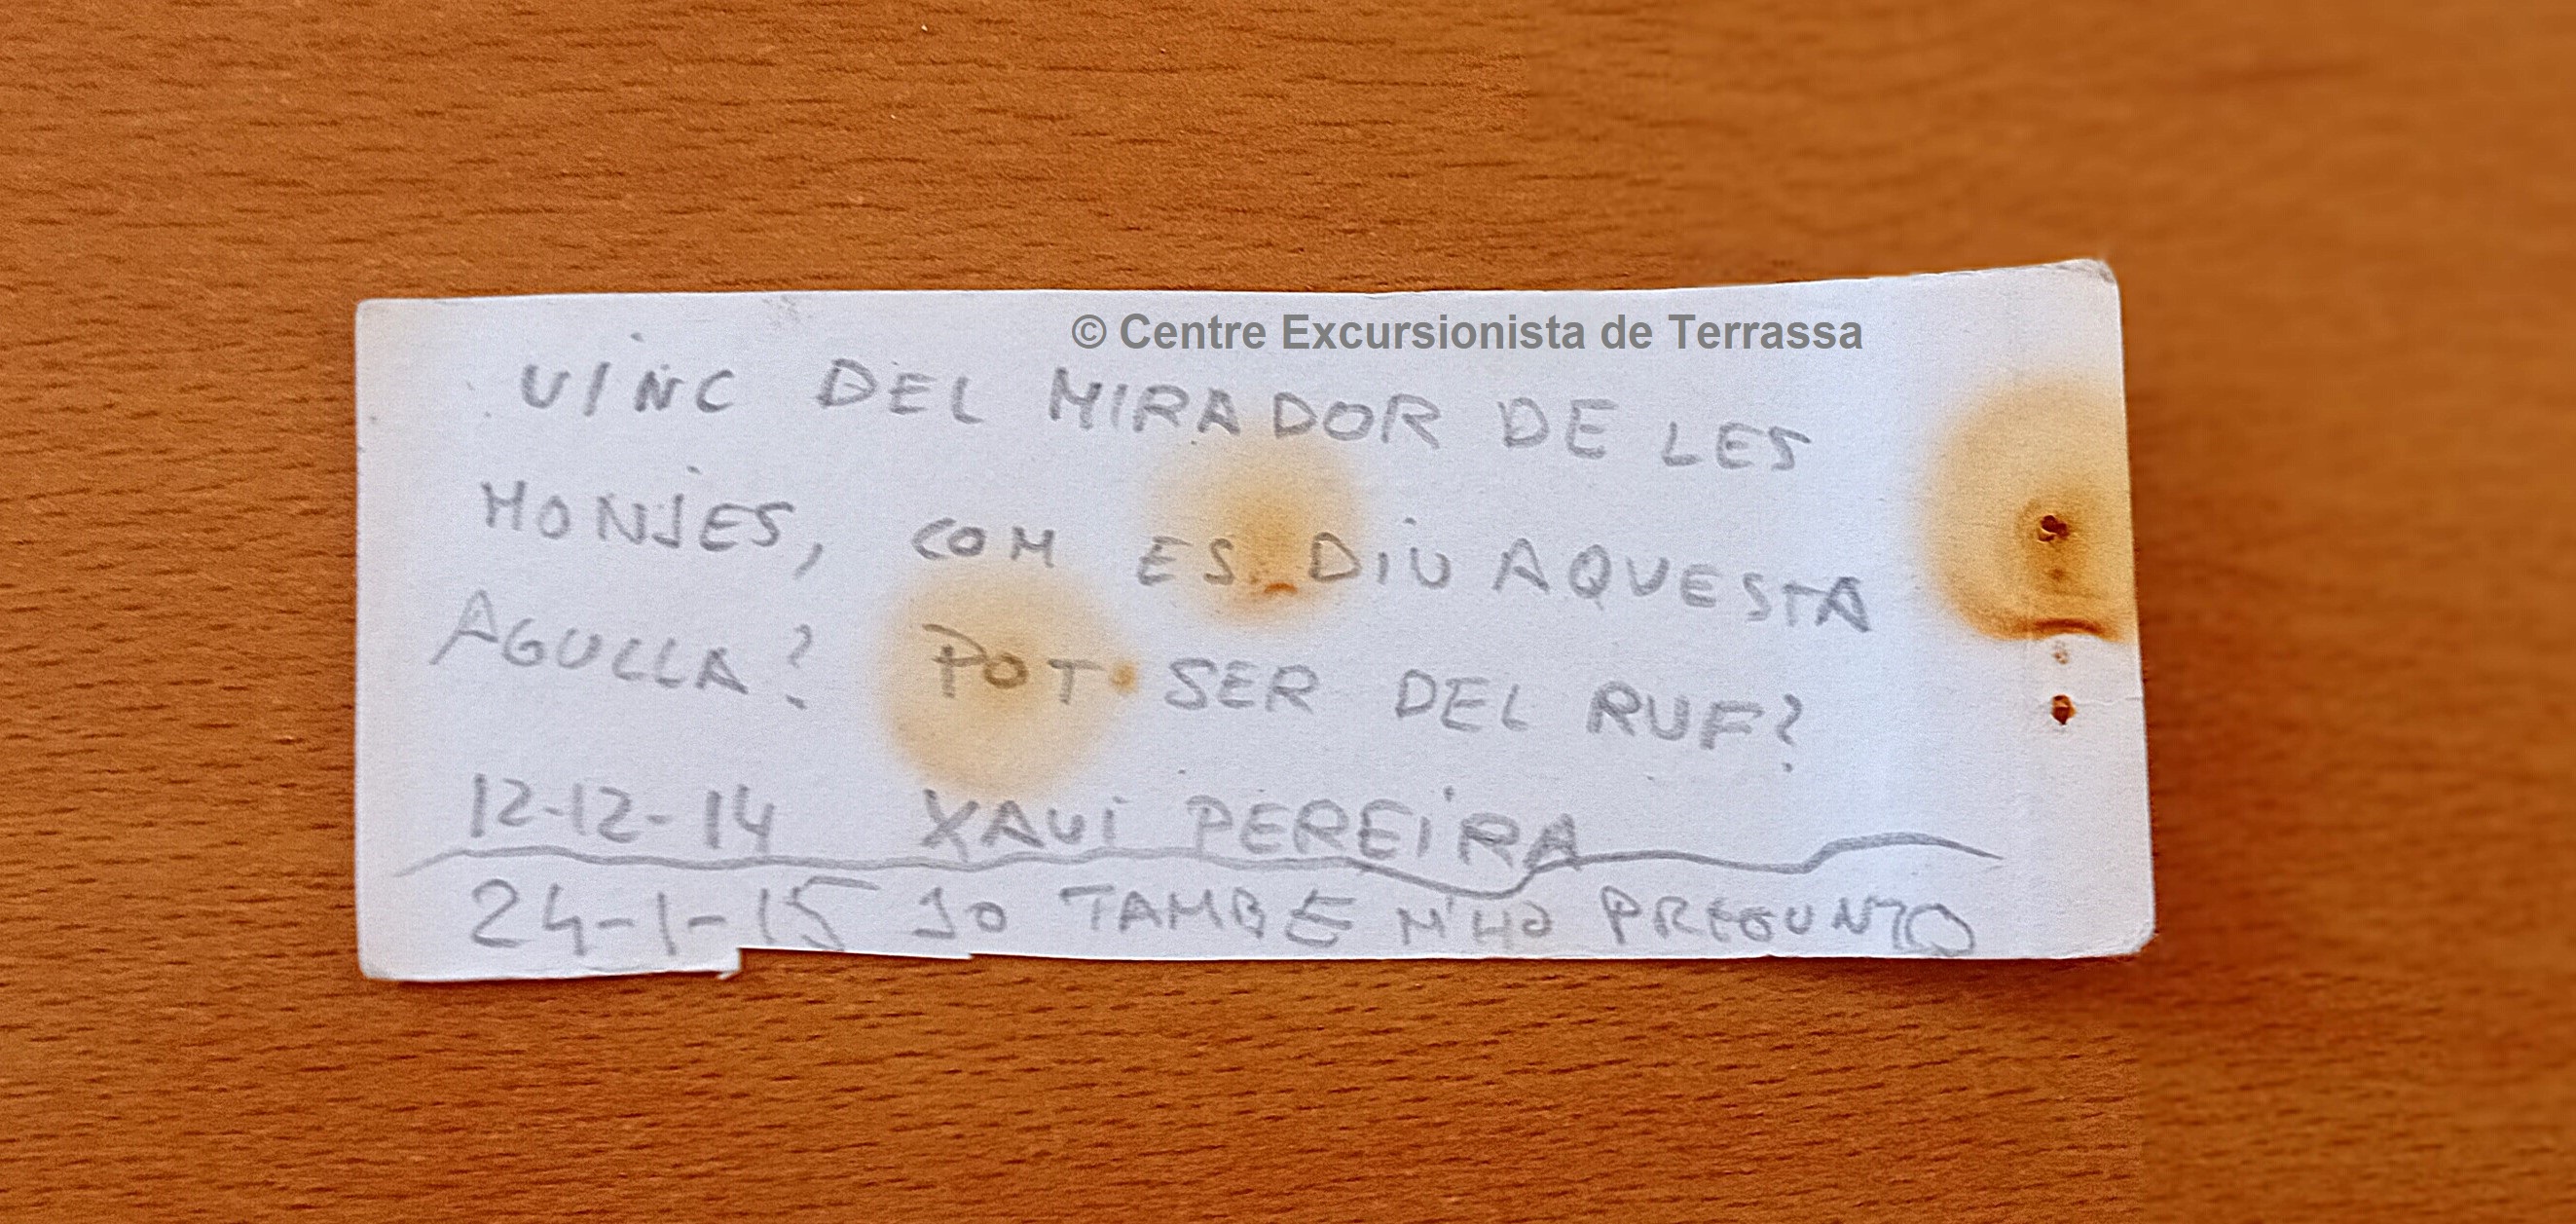 © Centre Excursionista de Terrassa
VINC DEL MIRADOR DE LES
MONJES, COM ES DIU AQUESTA
AGULLA? POT SER DEL RUF?
12-12-14 XAVI PEREIRA
24-1-15 JO TAMBE M'HO PREGUNTO